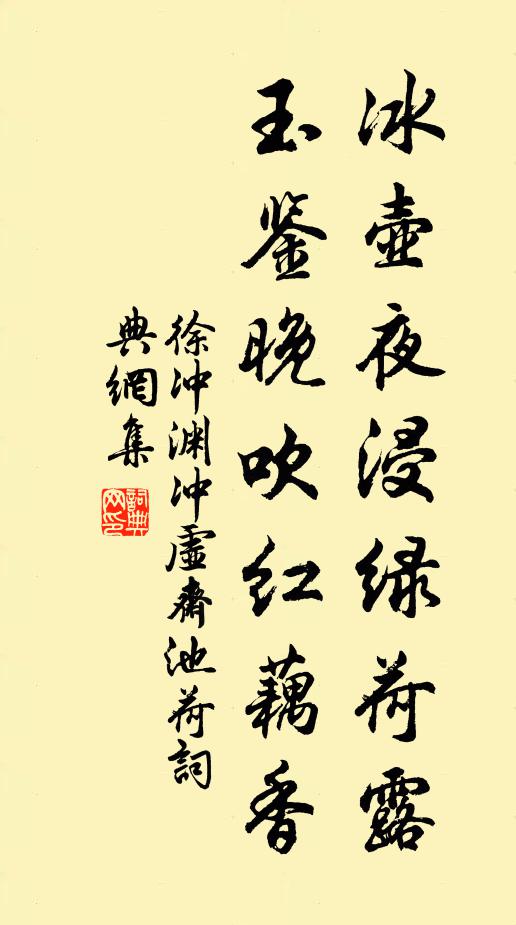 冰壶夜浸绿荷露
玉鉴晚吹红藕香
徐冲渊冲虚斋池荷詞
典網集
詞典網印